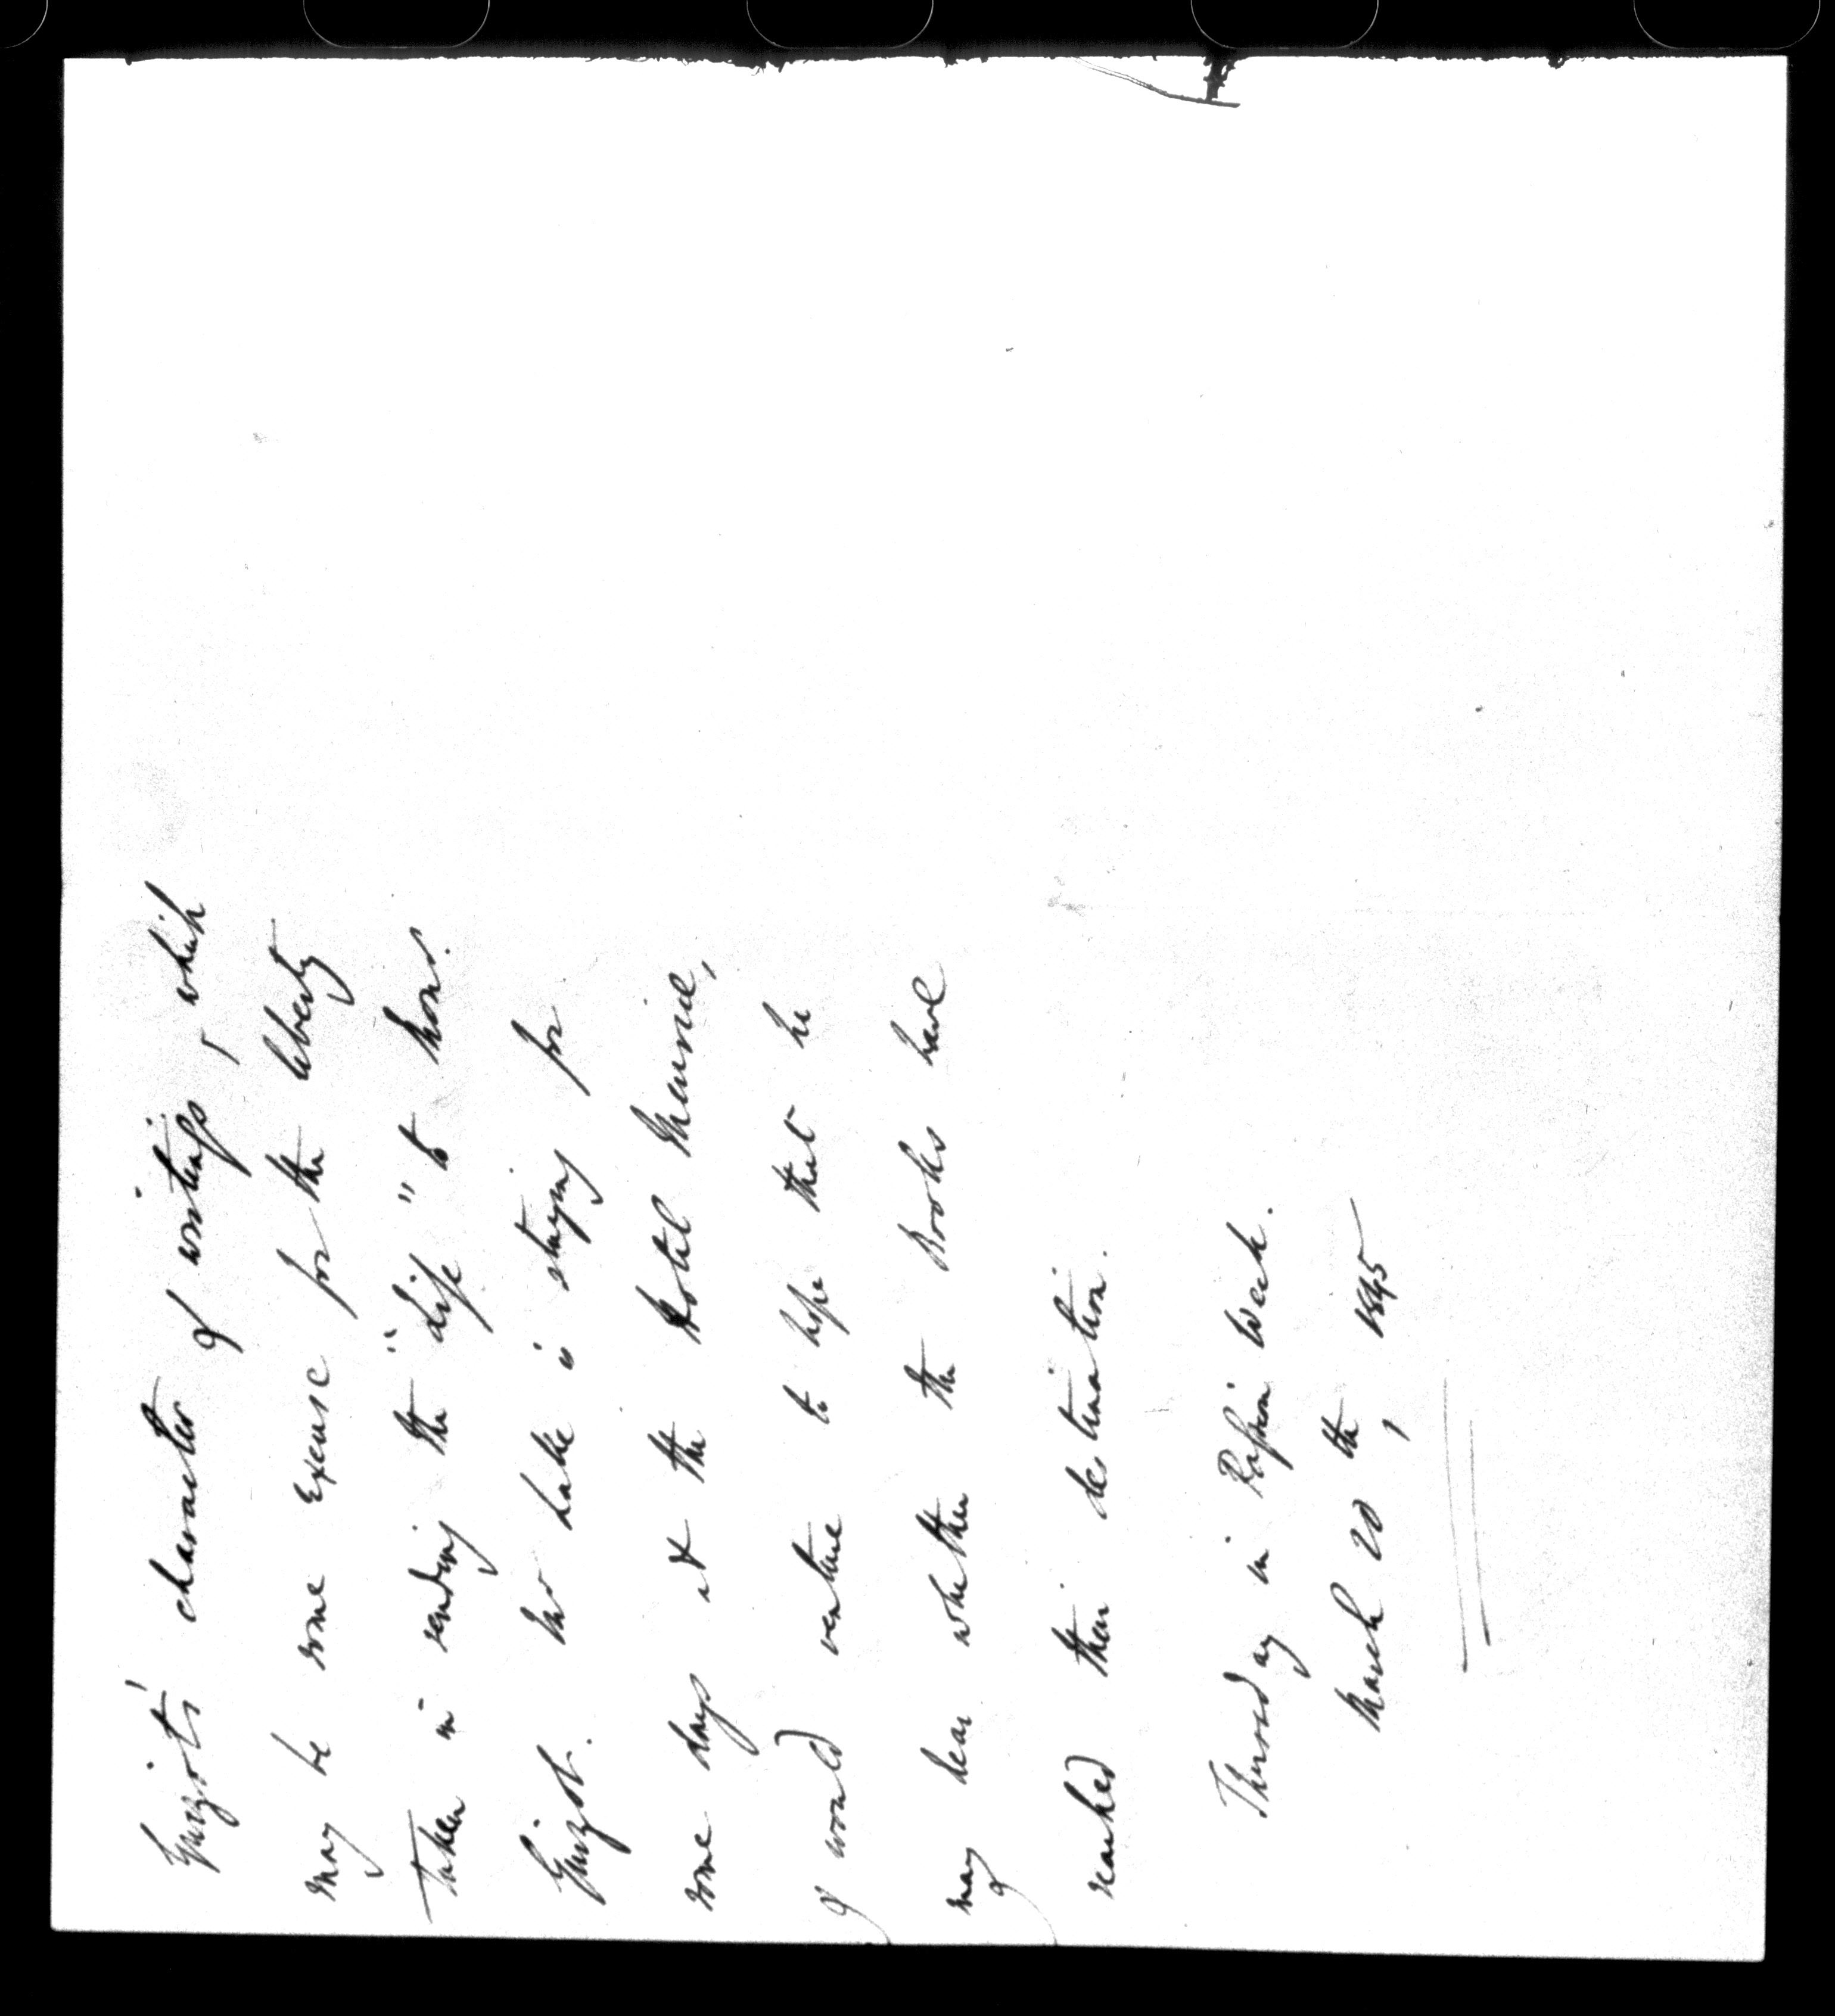 Guizots' character & writings, which
may be some Excuse for the liberty
taken in sending the "Life" to Mons.
Guizot. Mr Lake is staying for
some days at the Hotel Meurice,
& would venture to hope that he
may hear whether the Books have
reached their destination.
Thursday in Passion Week.
March 20 th, 1845